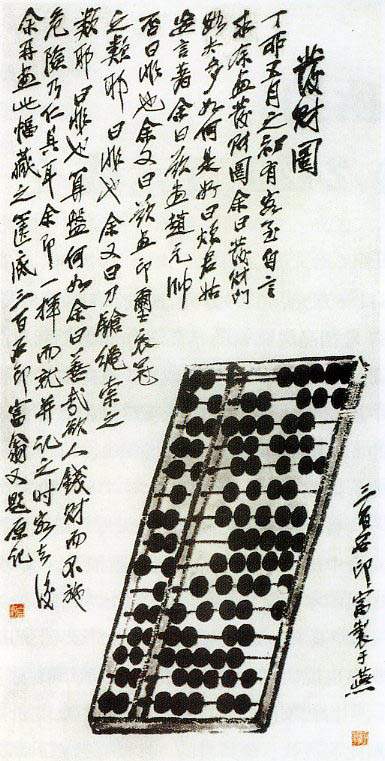 發財圖
丁卯五月之初有客至自言
求余畫發財圖余曰發財門
路太多如何是好曰煩君姑
妄言者余曰欲畫趙元帥
否曰非也余又曰欲畫印璽衣冠
之類耶曰非也余又曰刀鎗繩索之
類耶曰非也算盤何如余曰善哉欲人錢財而不施
危險乃仁具耳余即一揮而就并記之時客去後
余再畫此幅藏之篋底三百石印富翁又題原記
三百石印富製于燕